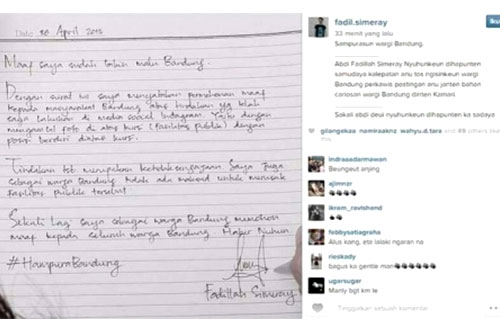 Date 16 April 2015
Maaf saya sudah bikin malu Bandung.
Dengan surat ini saya menyatakan permohonan maaf
kepada masyarakat Bandung atas tindakan yg telah
saya lakukan di media social Instagram. Yaitu dengan
mengupload foto di atas kursi (Fasilitas Publik) dengan
posisi berdiri diatas kursi.
Tindakan tsb merupakan ketidaksengajaan Saya Juga
sebagai warga Bandung tidak ada maksud untuk merusak
Fasilitas publik tersebut
Sekali Lagi saya sebagai warga Bandung memohon
maaf kepada seluruh warga Bandung. Hatur Nuhun
#HampuraBandung
Fadillah Simeray
fadil.simeray
Iku
33 menit yang lalu
Sampurasun wargi Bandung.
Abdi Fadillah Simeray Nyuhunkeun dihapunten
samudaya kalepatan anu tos ngisinkeun wargi
Bandung perkawis postingan anu janten bahan
cariosan wargi Bandung dinten Kamari.
Sakali abdi deui nyuhunkeun dihapunten ka sadaya
gilangekaa, namiraaknz, wahyu.d.tars and 49 others like
indraaadarmawan
Beungeut anjing
ajimnzr
ikram_ravishend
febbysatiagraha
Alus kang, etsi lalaki ngaran na
rieskady
bagus ka gentle man
ugarsugar
Manly bgt km le
Tinggalkan sebuah komentar